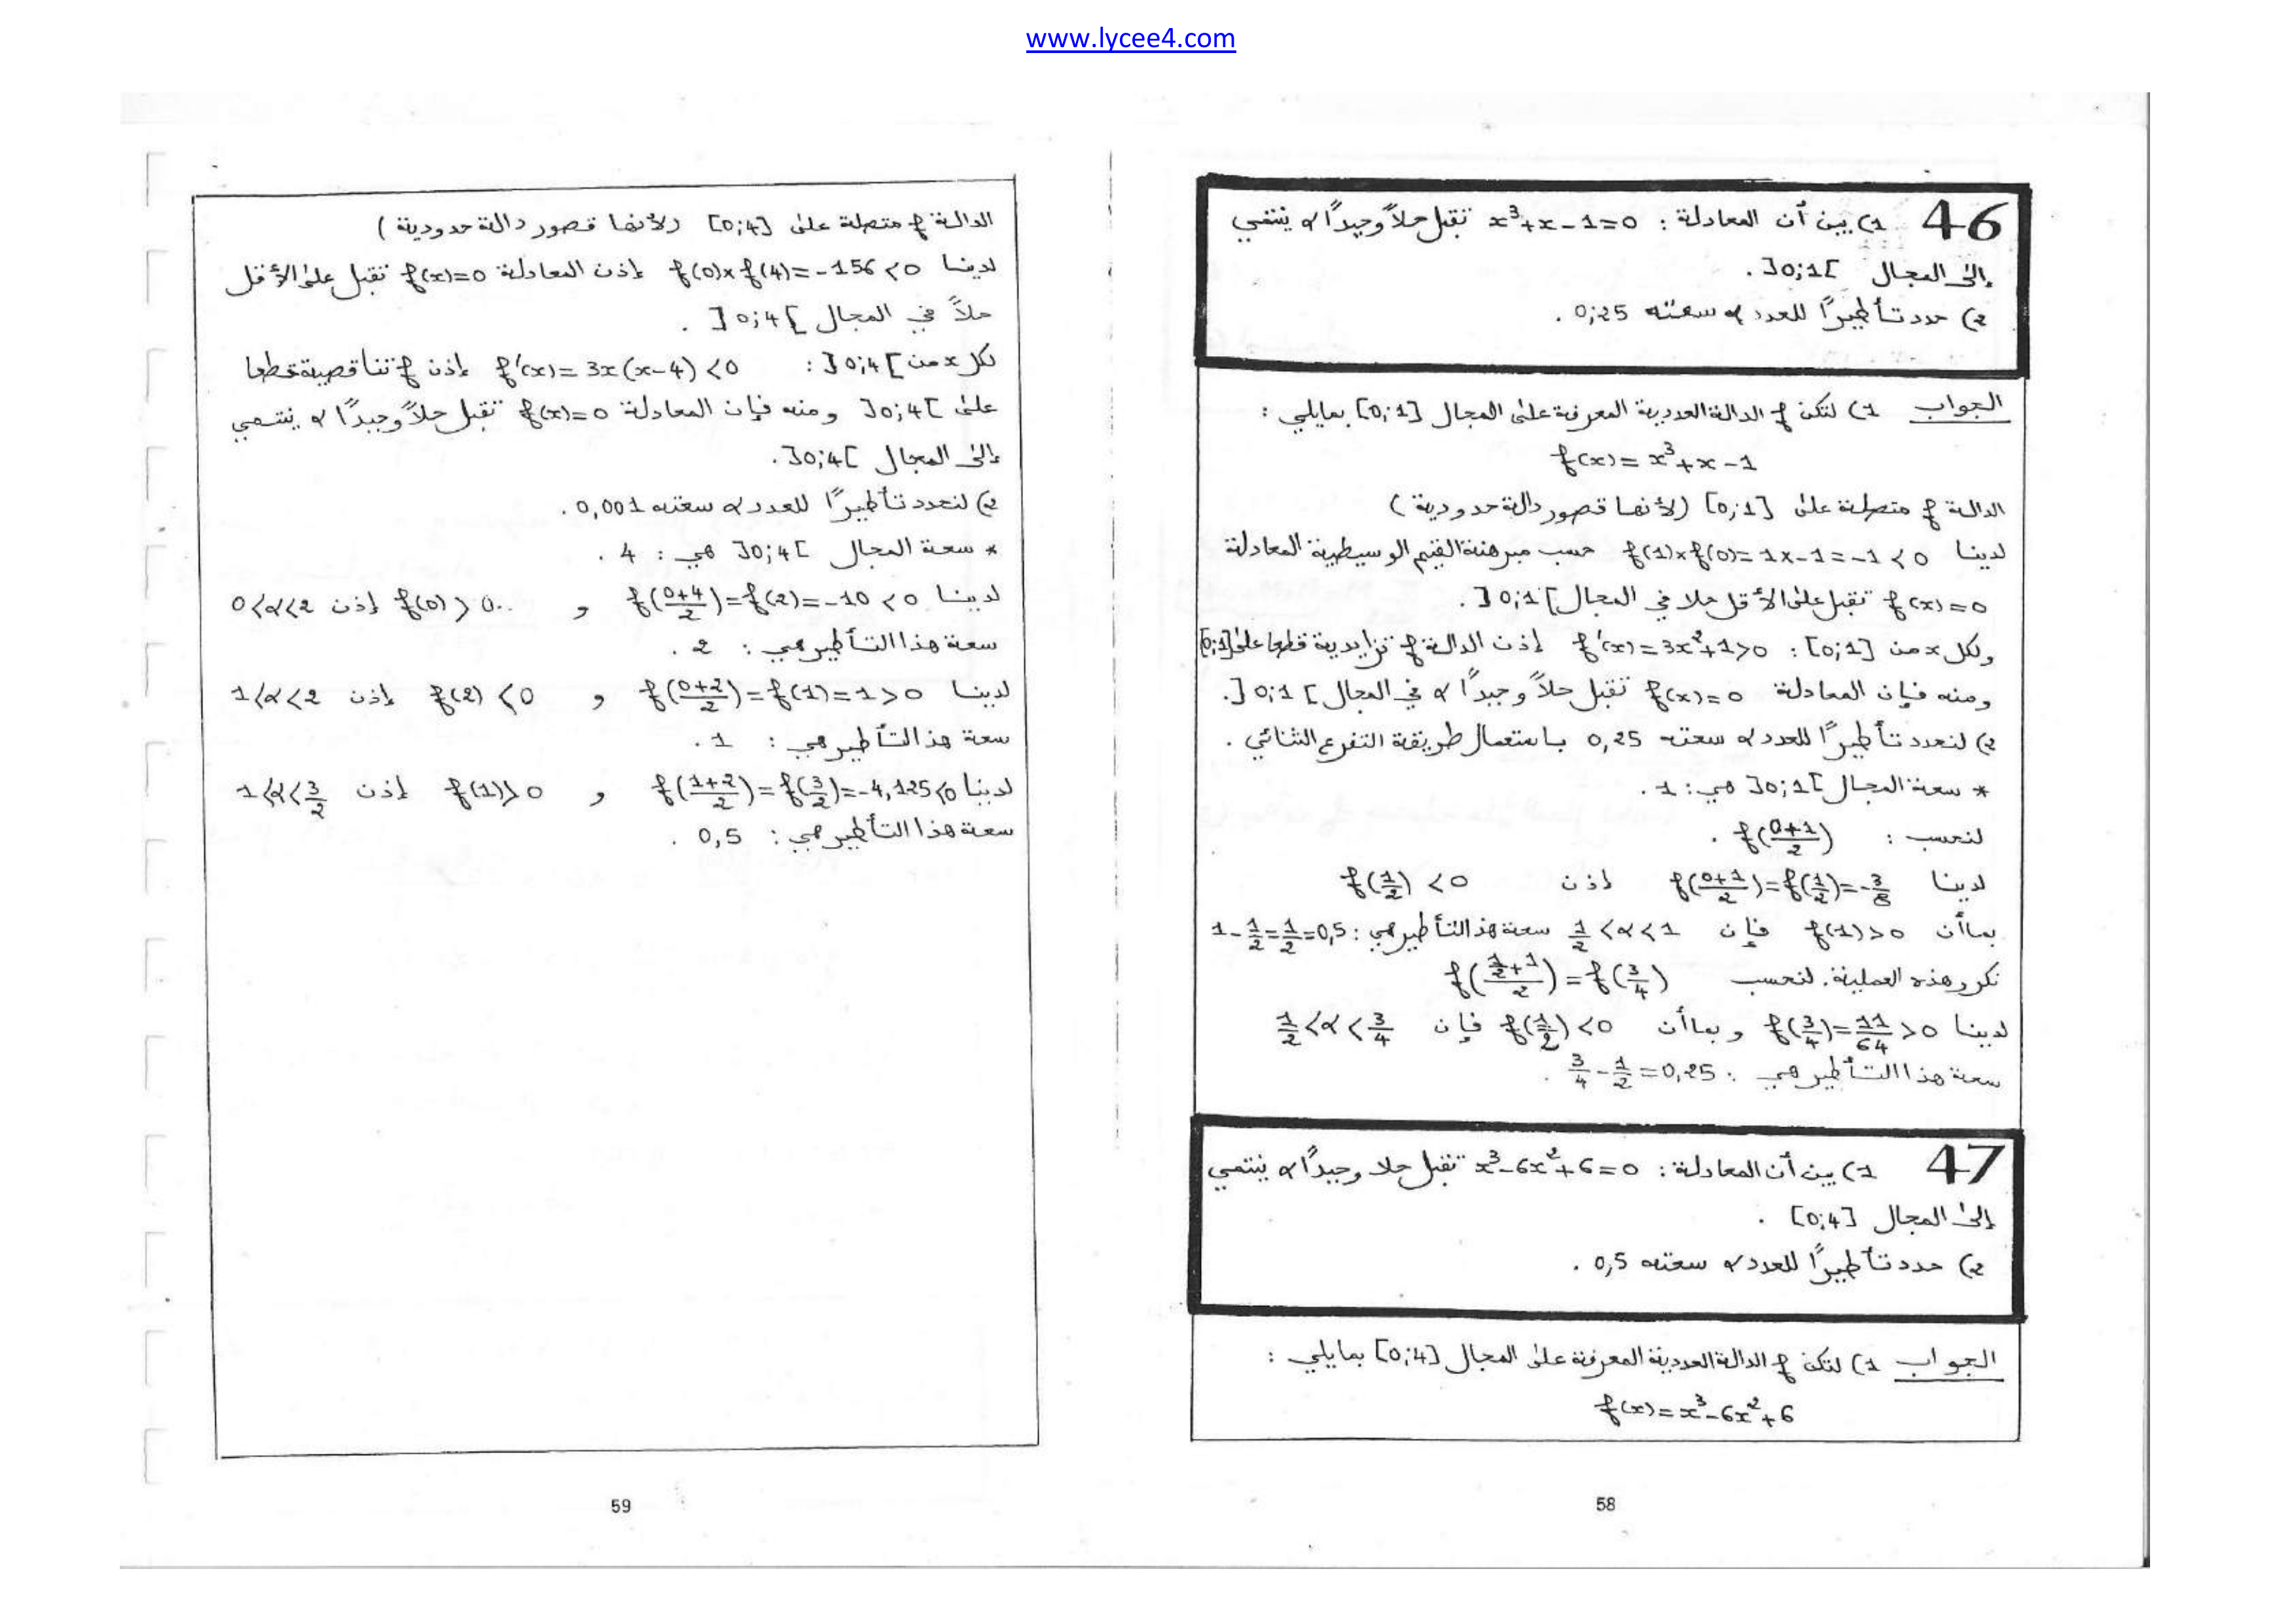 www.lycee4.com
46 1) بين أن المعادلة : x³+x-1=0 تقبل حلاً وحيداً α ينتمي
إلى المجال ]0;1[ .
2) حدد تأطيراً للعدد α سعته 0,25 .
الجواب 1) لتكن f الدالة العددية المعرفة على المجال [0;1] بمايلي :
f(x)= x³+x-1
الدالة f متصلة على [0;1] (لأنها قصور دالة حدودية)
لدينا f(1)×f(0)=1×-1=-1<0 حسب مبرهنة القيم الوسيطية المعادلة
f(x)=0 تقبل على الأقل حلا في المجال ]0;1[ .
ولكل x من [0;1] : f'(x)=3x²+1>0 إذن الدالة f تزايدية قطعا على [0;1]
ومنه فإن المعادلة f(x)=0 تقبل حلاً وحيداً α في المجال ]0;1[ .
2) لنحدد تأطيراً للعدد α سعته 0,25 باستعمال طريقة التفرع الثنائي .
* سعة المجال ]0;1[ هي : 1 .
لنحسب : f((0+1)/2) .
لدينا f((0+1)/2)=f(1/2)=-3/8 إذن f(1/2)<0
بما أن f(1)>0 فإن 1/2<α<1 سعة هذا التأطير هي : 1-1/2=1/2=0,5
نكرر هذه العملية. لنحسب f((1/2+1)/2)=f(3/4)
لدينا f(3/4)=11/64>0 وبما أن f(1/2)<0 فإن 1/2<α<3/4
سعة هذا التأطير هي : 3/4-1/2=0,25 .
47 1) بين أن المعادلة : x³-6x²+6=0 تقبل حلا وحيداً α ينتمي
إلى المجال [0;4] .
2) حدد تأطيراً للعدد α سعته 0,5 .
الجواب 1) لتكن f الدالة العددية المعرفة على المجال [0;4] بمايلي :
f(x)=x³-6x²+6
58
الدالة f متصلة على [0;4] (لأنها قصور دالة حدودية)
لدينا f(0)×f(4)=-156<0 إذن المعادلة f(x)=0 تقبل على الأقل
حلاً في المجال ]0;4[ .
لكل x من ]0;4[ : f'(x)=3x(x-4)<0 إذن f تناقصية قطعا
على ]0;4[ ومنه فإن المعادلة f(x)=0 تقبل حلاً وحيداً α ينتمي
إلى المجال ]0;4[ .
2) لنحدد تأطيراً للعدد α سعته 0,001 .
* سعة المجال ]0;4[ هي : 4 .
لدينا f((0+4)/2)=f(2)=-10<0 و f(0)>0 إذن 0<α<2
سعة هذا التأطير هي : 2 .
لدينا f((0+2)/2)=f(1)=1>0 و f(2)<0 إذن 1<α<2
سعة هذا التأطير هي : 1 .
لدينا f((1+2)/2)=f(3/2)=-4,125<0 و f(1)>0 إذن 1<α<3/2
سعة هذا التأطير هي : 0,5 .
59